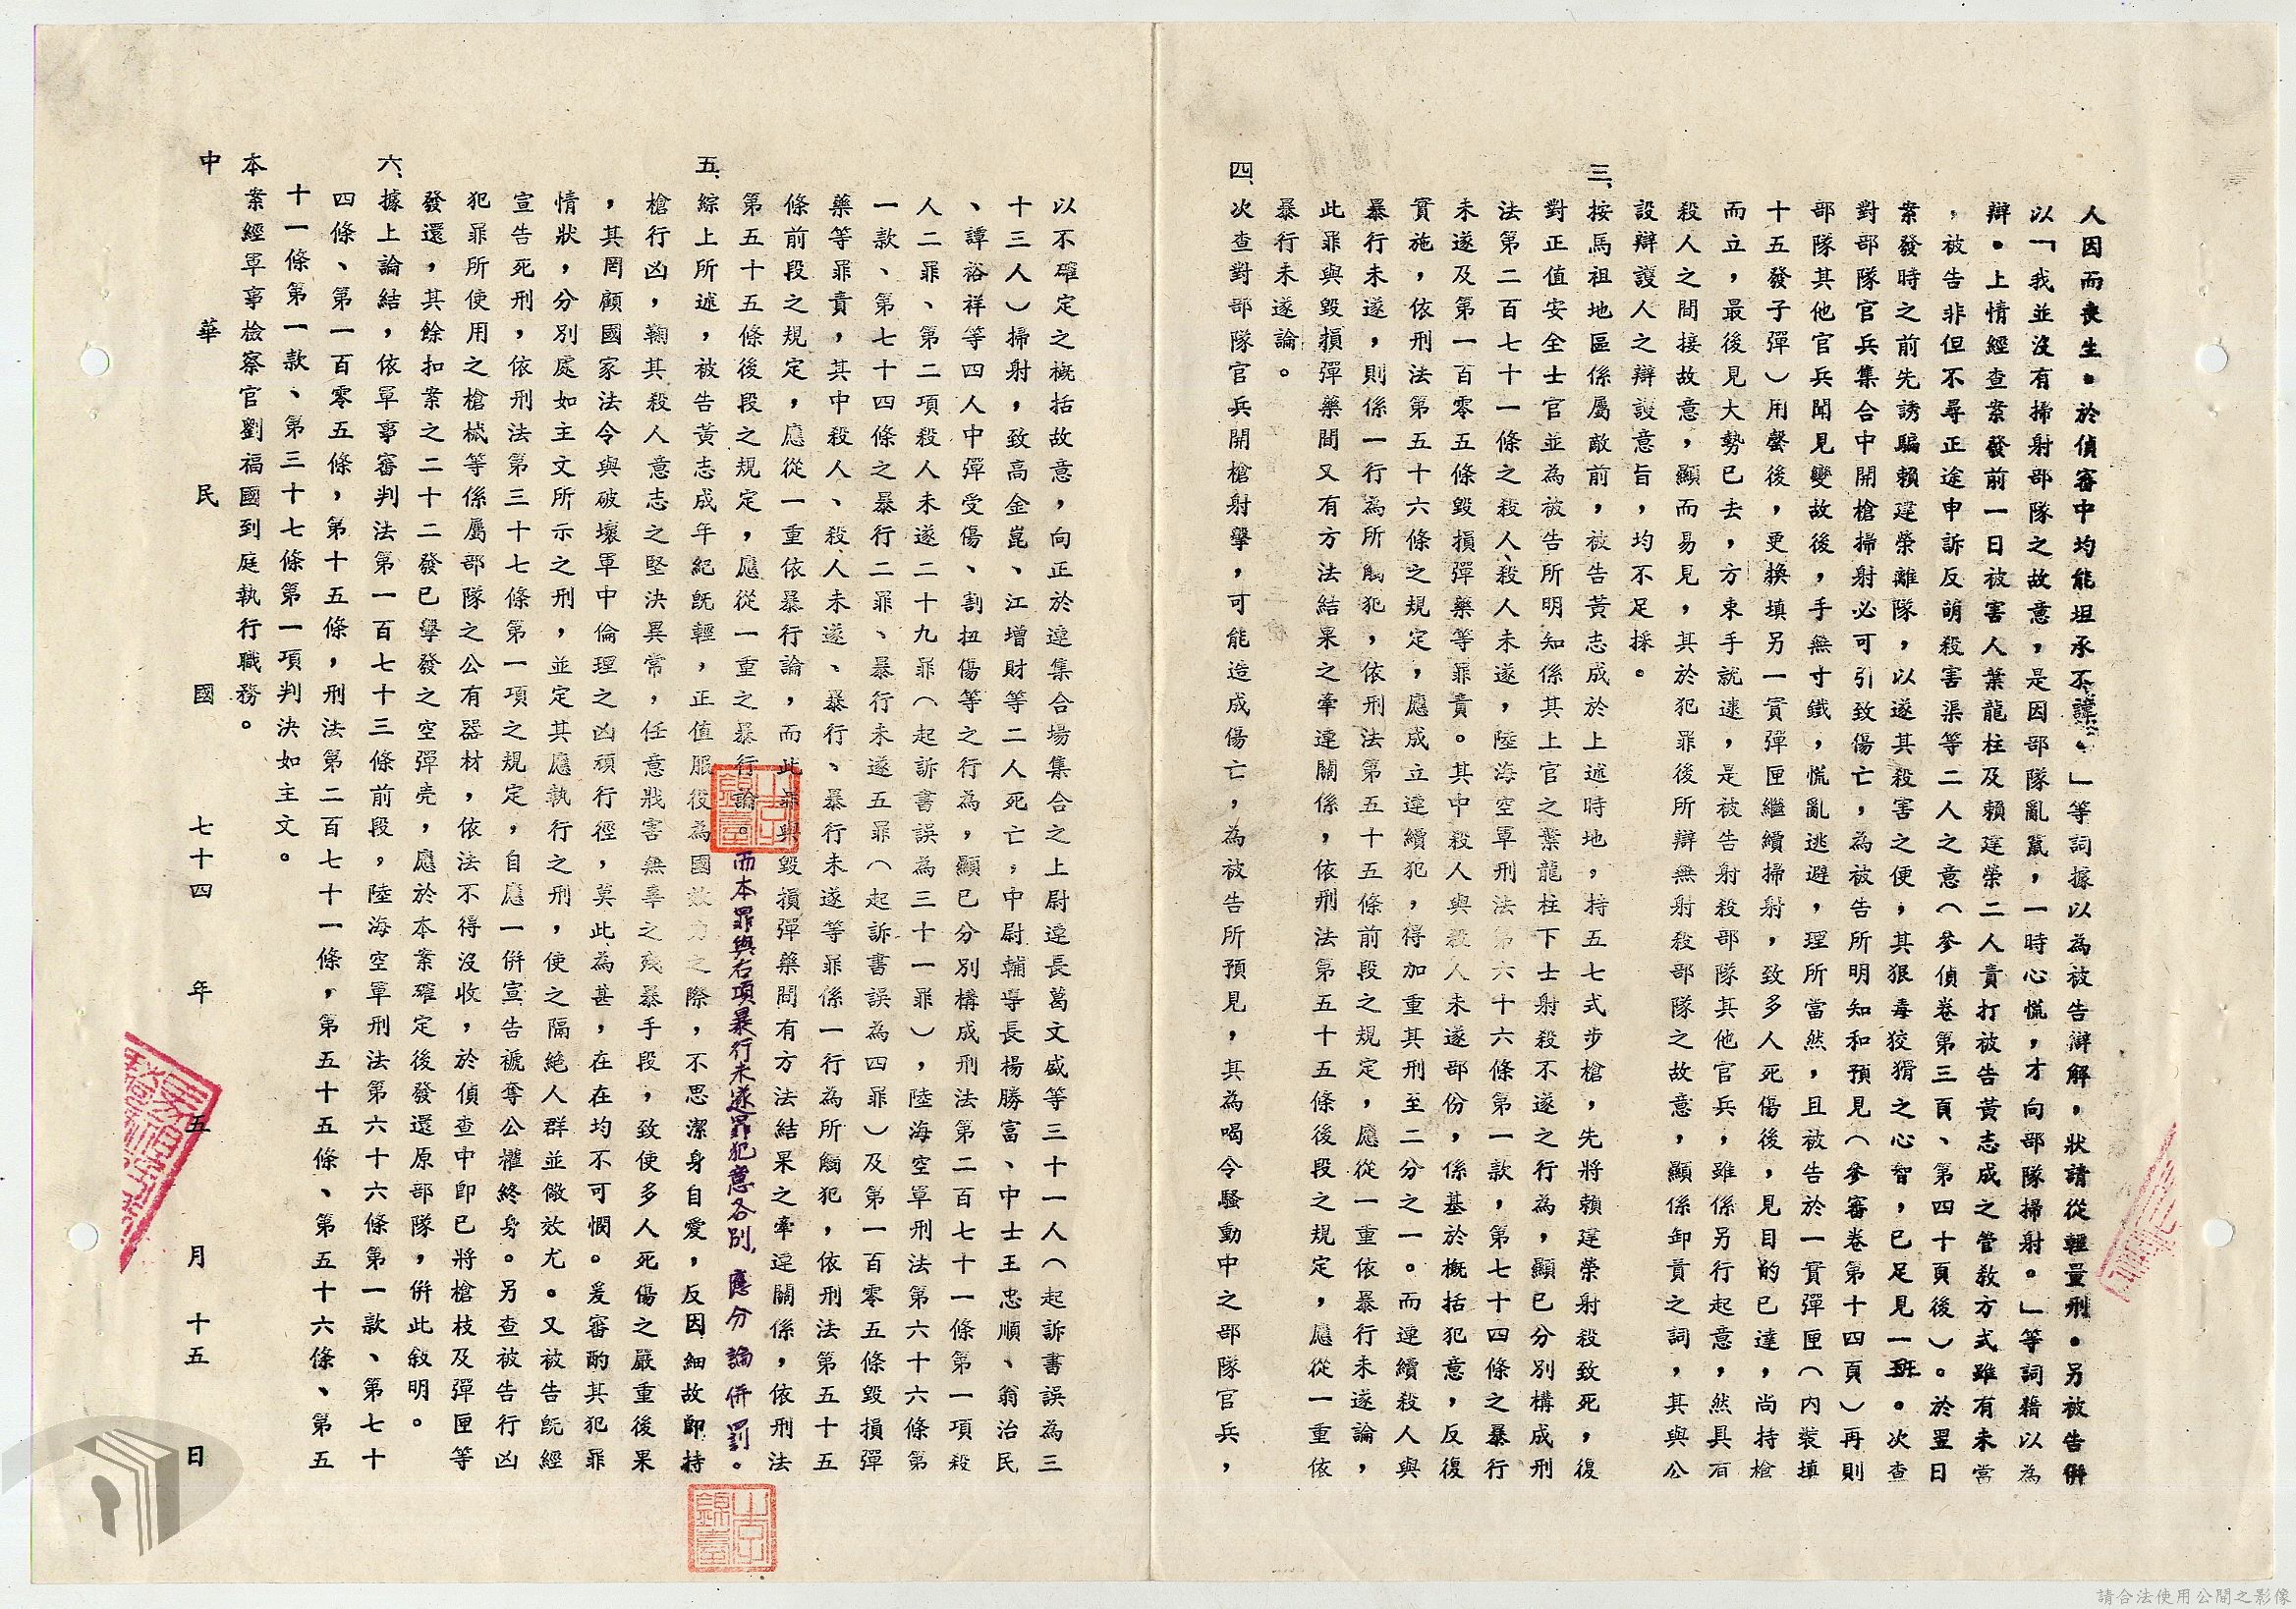 人因而喪生。於偵審中均能坦承不諱。」等詞據以為被告辯解，狀請從輕量刑。另被告併
以「我並沒有掃射部隊之故意，是因部隊亂竄，一時心慌，才向部隊掃射。」等詞藉以為
辯。上情經查案發前一日被害人葉龍柱及賴建榮二人責打被告黃志成之管教方式雖有未當
，被告非但不尋正途申訴反萌殺害渠等二人之意（參偵卷第三頁、第四十頁後）。於翌日
案發時之前先誘騙賴建榮離隊，以遂其殺害之便，其狠毒狡猾之心智，已足見一斑。次查
對部隊官兵集合中開槍掃射必可引致傷亡，為被告所明知和預見（參審卷第十四頁）再則
部隊其他官兵聞見變故後，手無寸鐵，慌亂逃避，理所當然，且被告於一實彈匣（內裝填
十五發子彈）用罄後，更換填另一實彈匣繼續掃射，致多人死傷後，見目的已達，尚持槍
而立，最後見大勢已去，方束手就逮，是被告射殺部隊其他官兵，雖係另行起意，然具有
殺人之間接故意，顯而易見，其於犯罪後所辯無射殺部隊之故意，顯係卸責之詞，其與公
設辯護人之辯護意旨，均不足採。
三、按馬祖地區係屬敵前，被告黃志成於上述時地，持五七式步槍，先將賴建榮射殺致死，復
對正值安全士官並為被告所明知係其上官之葉龍柱下士射殺不遂之行為，顯已分別構成刑
法第二百七十一條之殺人、殺人未遂，陸海空軍刑法第六十六條第一款，第七十四條之暴行
未遂及第一百零五條毀損彈藥等罪責。其中殺人與殺人未遂部份，係基於概括犯意，反復
實施，依刑法第五十六條之規定，應成立連續犯，得加重其刑至二分之一。而連續殺人與
暴行未遂，則係一行為所觸犯，依刑法第五十五條前段之規定，應從一重依暴行未遂論，
此罪與毀損彈藥間又有方法結果之牽連關係，依刑法第五十五條後段之規定，應從一重依
暴行未遂論。
四、次查對部隊官兵開槍射擊，可能造成傷亡，為被告所預見，其為喝令騷動中之部隊官兵，
以不確定之概括故意，向正於連集合場集合之上尉連長葛文盛等三十一人（起訴書誤為三
十三人）掃射，致高金崑、江增財等二人死亡，中尉輔導長楊勝富、中士王忠順、翁治民
、譚裕祥等四人中彈受傷、割扭傷等之行為，顯已分別構成刑法第二百七十一條第一項殺
人二罪、第二項殺人未遂二十九罪（起訴書誤為三十一罪），陸海空軍刑法第六十六條第
一款、第七十四條之暴行二罪、暴行未遂五罪（起訴書誤為四罪）及第一百零五條毀損彈
藥等罪責，其中殺人、殺人未遂、暴行、暴行未遂等罪係一行為所觸犯，依刑法第五十五
條前段之規定，應從一重依暴行論，而此罪與毀損彈藥間有方法結果之牽連關係，依刑法
第五十五條後段之規定，應從一重之暴行論。而本罪與右項暴行未遂罪犯意各別，應分論併罰。
五、綜上所述，被告黃志成年紀既輕，正值服役為國效力之際，不思潔身自愛，反因細故即持
槍行凶，鞫其殺人意志之堅決異常，任意戕害無辜之殘暴手段，致使多人死傷之嚴重後果
，其罔顧國家法令與破壞軍中倫理之凶頑行徑，莫此為甚，在在均不可憫。爰審酌其犯罪
情狀，分別處如主文所示之刑，並定其應執行之刑，使之隔絕人群並儆效尤。又被告既經
宣告死刑，依刑法第三十七條第一項之規定，自應一併宣告褫奪公權終身。另查被告行凶
犯罪所使用之槍械等係屬部隊之公有器材，依法不得沒收，於偵查中即已將槍枝及彈匣等
發還，其餘扣案之二十二發已擊發之空彈壳，應於本案確定後發還原部隊，併此敘明。
六、據上論結，依軍事審判法第一百七十三條前段，陸海空軍刑法第六十六條第一款、第七十
四條、第一百零五條，第十五條，刑法第二百七十一條，第五十五條、第五十六條、第五
十一條第一款、第三十七條第一項判決如主文。
本案經軍事檢察官劉福國到庭執行職務。
中華民國七十四年五月十五日
請合法使用公開之影像